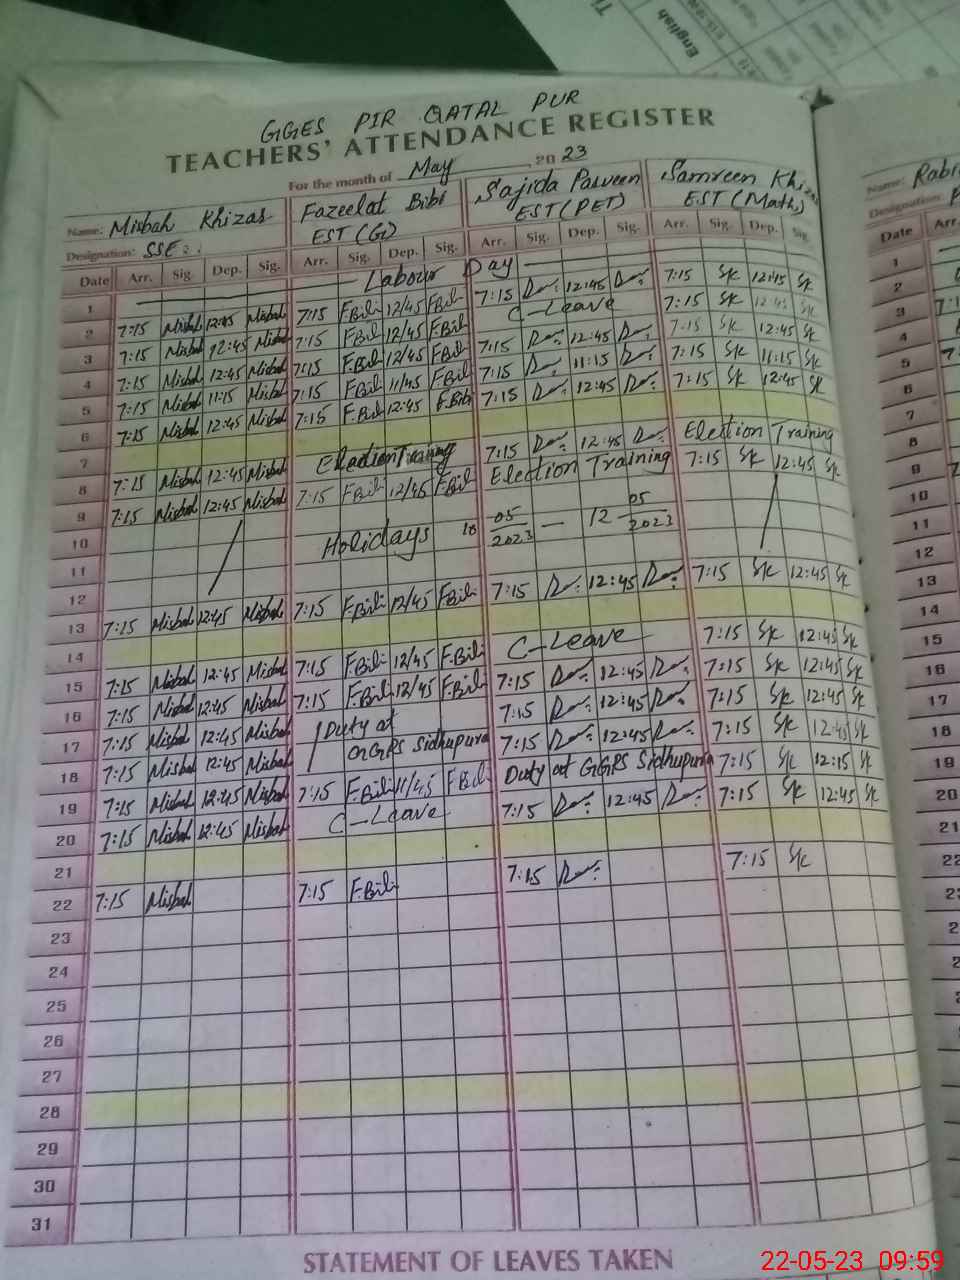 GGES PIR QATAL PUR
TEACHERS' ATTENDANCE REGISTER
For the month of May 2023
Name: Misbah Khizas Fazeelat Bibi Sajida Parveen Samreen Khizas
Designation: SSE EST (G) EST (PET) EST (Math)
Date Arr. Sig. Dep. Sig. Arr. Sig. Dep. Sig. Arr. Sig. Dep. Sig. Arr. Sig. Dep. Sig.
1 Labour Day
2 7:15 Misbah 12:45 Misbah 7:15 F.Bibi 12/45 F.Bibi 7:15 12:45 7:15 S/c 12:45 S/c
3 7:15 Misbah 12:45 Misbah 7:15 F.Bibi 12/45 F.Bibi C-Leave 7:15 S/c 12:45 S/c
4 7:15 Misbah 12:45 Misbah 7:15 F.Bibi 12/45 F.Bibi 7:15 12:45 7:15 S/c 12:45 S/c
5 7:15 Misbah 11:15 Misbah 7:15 F.Bibi 11/45 F.Bibi 7:15 11:15 7:15 S/c 11:15 S/c
6 7:15 Misbah 12:45 Misbah 7:15 F.Bibi 12:45 F.Bibi 7:15 12:45 7:15 S/c 12:45 S/c
7
8 7:15 Misbah 12:45 Misbah Election Training 7:15 12:45 Election Training
9 7:15 Misbah 12:45 Misbah 7:15 F.Bibi 12/45 F.Bibi Election Training 7:15 S/c 12:45 S/c
10 Holidays 10 05/2023 — 12 05/2023
11
12
13 7:15 Misbah 12:45 Misbah 7:15 F.Bibi 12/45 F.Bibi 7:15 12:45 7:15 S/c 12:45 S/c
14
15 7:15 Misbah 12:45 Misbah 7:15 F.Bibi 12/45 F.Bibi C-Leave 7:15 S/c 12:45 S/c
16 7:15 Misbah 12:45 Misbah 7:15 F.Bibi 12/45 F.Bibi 7:15 12:45 7:15 S/c 12:45 S/c
17 7:15 Misbah 12:45 Misbah Duty at 7:15 12:45 7:15 S/c 12:45 S/c
18 7:15 Misbah 12:45 Misbah GGPS Sidhupura 7:15 12:45 7:15 S/c 12:45 S/c
19 7:15 Misbah 12:45 Misbah 7:15 F.Bibi 11/45 F.Bibi Duty at GGPS Sidhupura 7:15 S/c 12:15 S/c
20 7:15 Misbah 12:45 Misbah C-Leave 7:15 12:45 7:15 S/c 12:45 S/c
21
22 7:15 Misbah 7:15 F.Bibi 7:15 7:15 S/c
23
24
25
26
27
28
29
30
31
STATEMENT OF LEAVES TAKEN
English
Name: Rabi
Designation:
Date Arr.
1
2
3
4
5
6
7
8
9
10
11
12
13
14
15
16
17
18
19
20
21
22
22-05-23 09:59